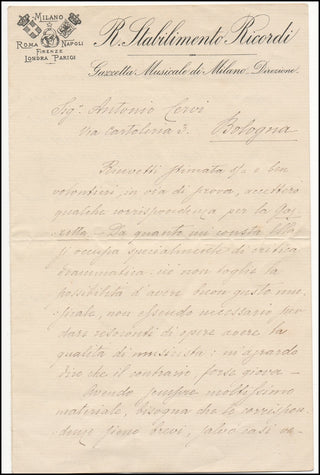 Milano
Roma Napoli
Firenze
Londra Parigi
R. Stabilimento Ricordi
Gazzetta Musicale di Milano. Direzione.
Sigr. Antonio Cervi
Via Cartoleria 3. Bologna
Ricevetti stimata s/ e ben
volontieri, in via di prova, accetterò
qualche corrispondenza per la Gaz-
zetta. Da quanto mi consta Ella
si occupa specialmente di critica
drammatica: ciò non toglie la
possibilità d'avere buon gusto mu-
sicale, non essendo necessario per
dari resoconti di opere avere la
qualità di musicista: m'agrado
dire che il contrario forse giova -
Avendo sempre moltissimo
materiale, bisogna che le corrispon-
denze sieno brevi, salvo casi ec-